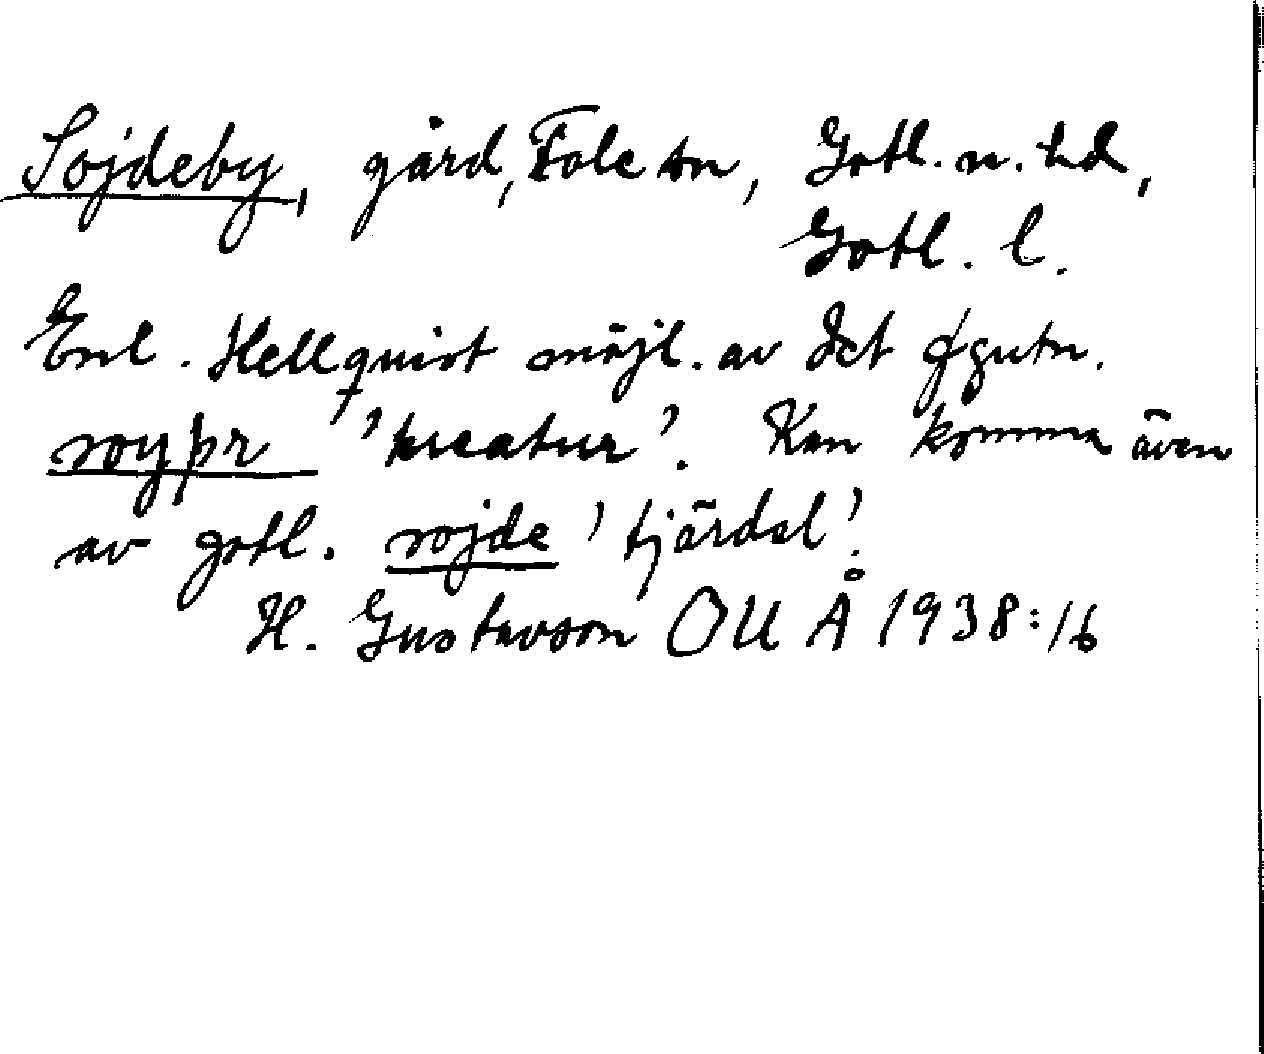 Sojdeby, gård, Fole sn, Gotl. n. hd,
Gotl. l.
Enl. Hellquist möjl. av det fgutn.
soyþr 'kreatur'. Kan komma även
av gotl. sojde 'tjärdal'.
H. Gustavson OUÅ 1938:16